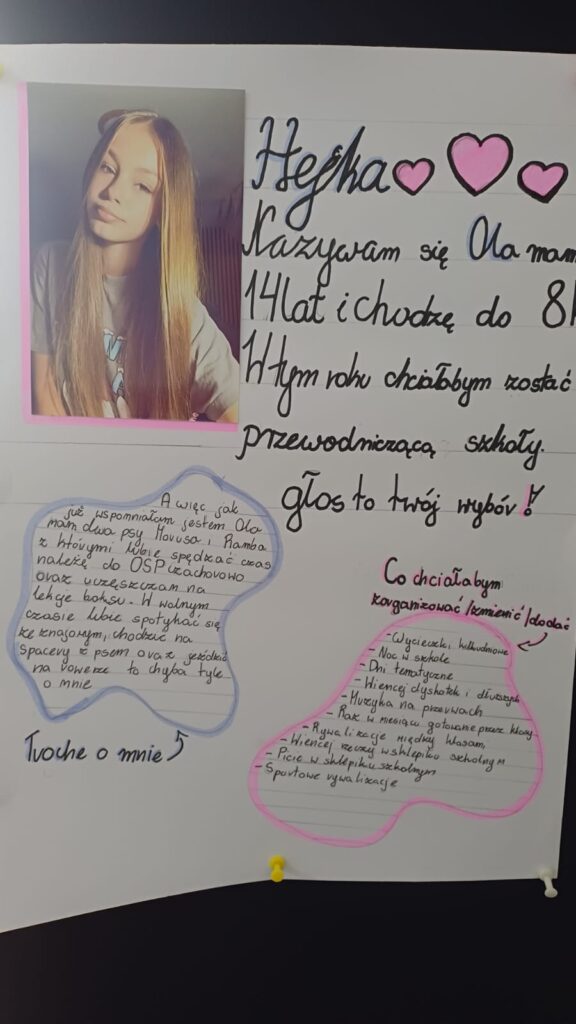 Hejka
Nazywam się Ola mam
14 lat i chodzę do 8
W tym roku chciałabym zostać
przewodniczącą szkoły.
głos to twój wybór!
A więc jak
już wspomniałam jestem Ola
mam dwa psy Morusa i Ramba
z którymi lubię spędzać czas
należę do OSP
oraz uczęszczam na
lekcje boksu. W wolnym
czasie lubię spotykać się
ze znajomymi, chodzić na
spacery z psem oraz jeździć
na rowerze to chyba tyle
o mnie
Troche o mnie
Co chciałabym
zorganizować /zmienić /dodać
- Wycieczki kilkudniowe
- Noc w szkole
- Dni tematyczne
- Wiencej dyskotek i dłuższych
- Muzyka na przerwach
- Raz w miesiącu gotowanie przez klasy
- Rywalizacje między klasami,
- Wiencej rzeczy w sklepiku szkolnym
- Picie w sklepiku szkolnym
- Sportowe rywalizacje